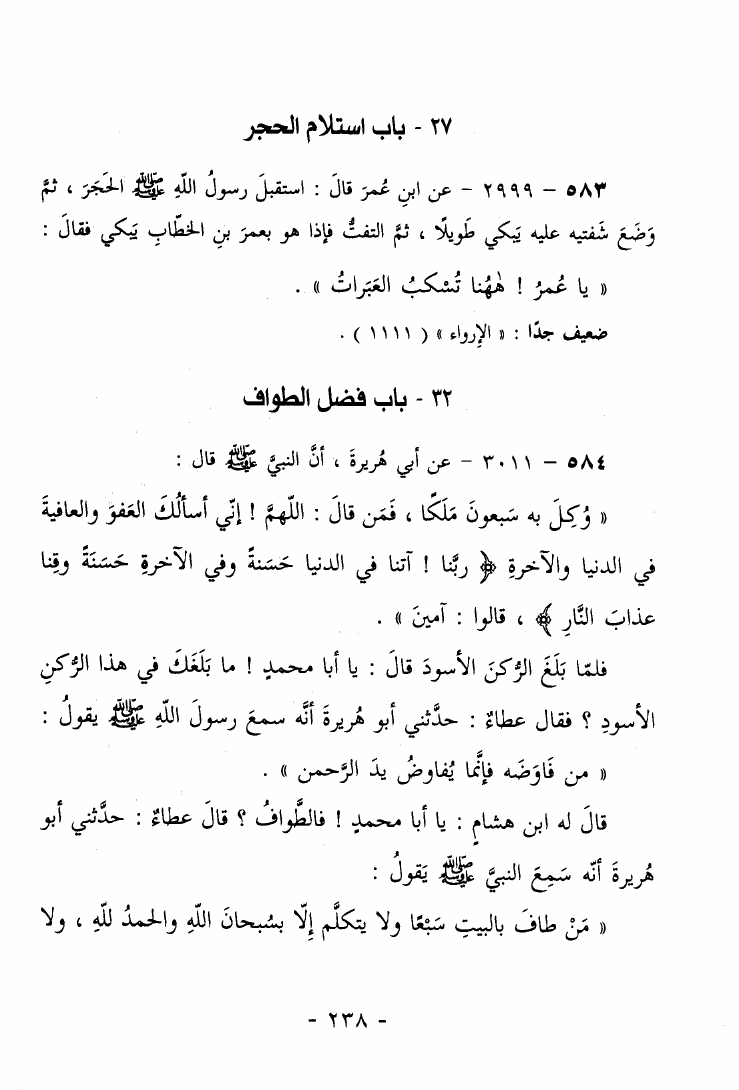 ٢٧ - باب استلام الحجر
٥٨٣ – ٢٩٩٩ – عن ابنِ عُمرَ قالَ : استقبلَ رسولُ اللّهِ ﷺ الحَجَرَ ، ثمَّ
وَضَعَ شَفتيه عليه يَبكي طَويلًا ، ثمَّ التفتُّ فإذا هو بعمرَ بنِ الخطّابِ يَبكي فقالَ :
« يا عُمرُ ! هٰهُنا تُسْكبُ العَبَراتُ » .
ضعيف جدًا : « الإرواء » ( ١١١١ ) .
٣٢ - باب فضل الطواف
٥٨٤ – ٣٠١١ – عن أبي هُريرةَ ، أنَّ النبيَّ ﷺ قال :
« وُكِلَ به سَبعونَ مَلَكًا ، فَمَن قالَ : اللّهمَّ ! إنّي أسألُكَ العَفوَ والعافيةَ
في الدنيا والآخرةِ ﴿ ربَّنا ! آتنا في الدنيا حَسَنةً وفي الآخرةِ حَسَنَةً وقِنا
عذابَ النَّارِ ﴾ ، قالوا : آمينَ » .
فلمّا بَلَغَ الرُّكنَ الأسودَ قالَ : يا أبا محمدٍ ! ما بَلَغَكَ في هذا الرُّكنِ
الأسودِ ؟ فقال عطاءٌ : حدَّثني أبو هُريرةَ أنَّه سمعَ رسولَ اللّهِ ﷺ يقولُ :
« من فَاوَضَه فإنَّما يُفاوضُ يدَ الرَّحمن » .
قالَ له ابن هشامٍ : يا أبا محمدٍ ! فالطَّوافُ ؟ قالَ عطاءٌ : حدَّثني أبو
هُريرةَ أنه سَمِعَ النبيَّ ﷺ يَقولُ :
« مَنْ طافَ بالبيتِ سَبْعًا ولا يتكلَّم إلّا بسُبحانَ اللّهِ والحمدُ للّهِ ، ولا
- ٢٣٨ -